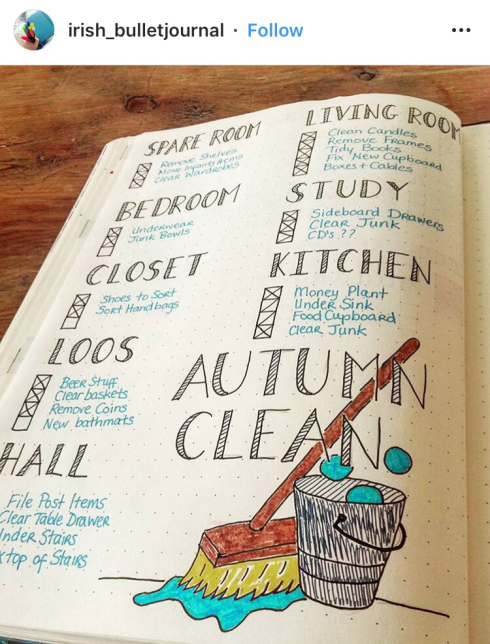 irish_bulletjournal · Follow
SPARE ROOM
Remove Shelves
Move Infants Items
Clear Wardrobes
BEDROOM
Underwear
Junk Bowls
CLOSET
Shoes to Sort
Sort Handbags
LOOS
Beer Stuff
Clear baskets
Remove Coins
New bathmats
HALL
File Post Items
Clear Table Drawer
Under Stairs
top of Stairs
LIVING ROOM
Clean Candles
Remove Frames
Tidy Books
Fix New Cupboard
Boxes + Cables
STUDY
Sideboard Drawers
Clear Junk
CD's ??
KITCHEN
Money Plant
Under Sink
Food Cupboard
Clear Junk
AUTUMN
CLEAN